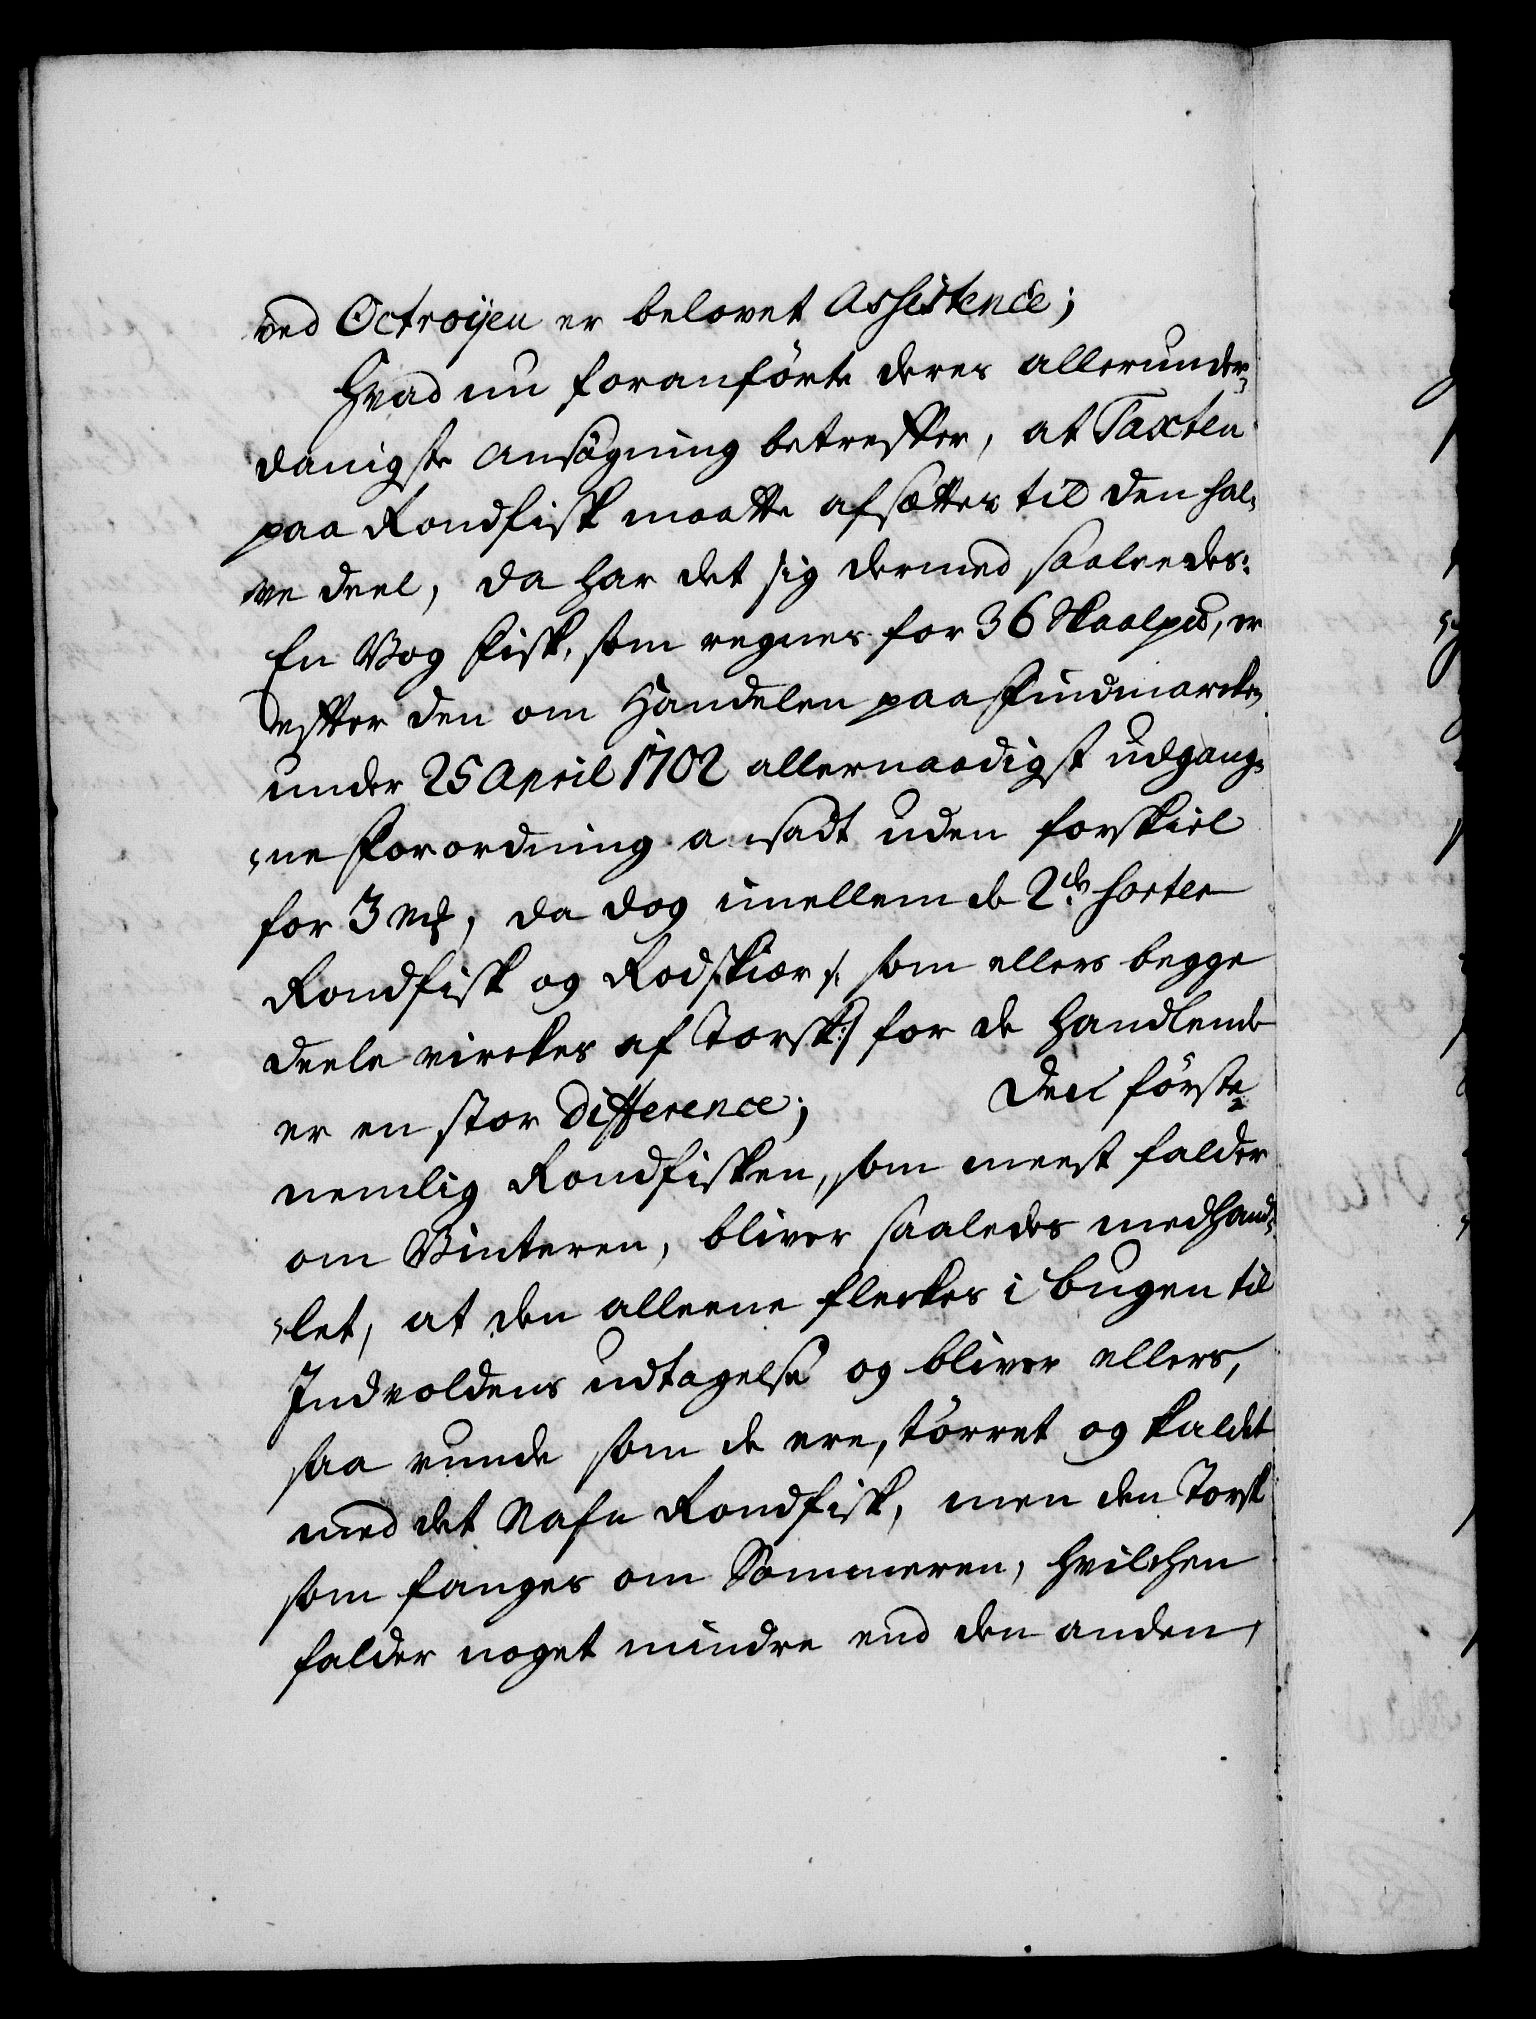 ved Octroijen er belovet Assistence;
Hvad nu foranförte deres allerunder-
danigste Ansögning betreffer, at Taxten
paa Rondfisk maatte afsættes til den hal-
ve deel, da har det sig dermed saaleedes:
En Vog Fisk, som regnes for 36 Skaalpd, er
effter den om Handelen paa Findmarcken
under 25 April 1702 allernaadigst udgang-
-ne Forordning ansadt uden forskiel
for 3 mk, da dog imellem de 2de sorter
Rondfisk og Rodskiær /: som ellers begge
deele virckes af Torsk :/ for de Handlende
er en stor Difference; Den förste
nemlig Rondfisken, som meest falder
om Vinteren, bliver saaledes medhand-
-let, at den alleene fleckes i Bugen til
Indvoldens udtagelse og bliver ellers,
saa runde som de ere, törret og kaldet
med det Nafn Rondfisk, men den Torsk
som fanges om Sommeren, hvilchen
falder noget mindre end den anden,